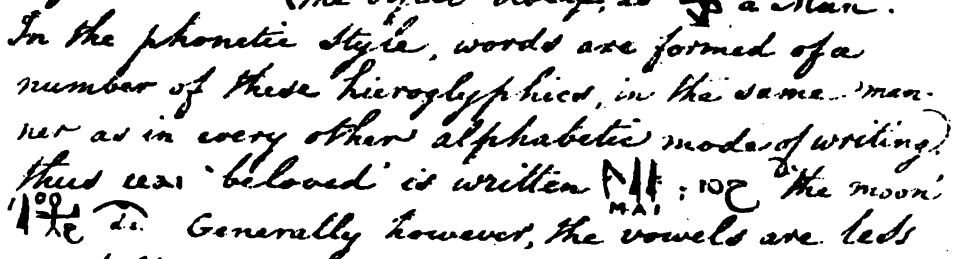 a Man.
In the phonetic style, words are formed of a
number of these hieroglyphics, in the same man-
ner as in every other alphabetic mode of writing,
thus ⲙⲁⲓ 'beloved' is written MAI ; ⲓⲟϩ 'the moon'
Generally however, the vowels are less